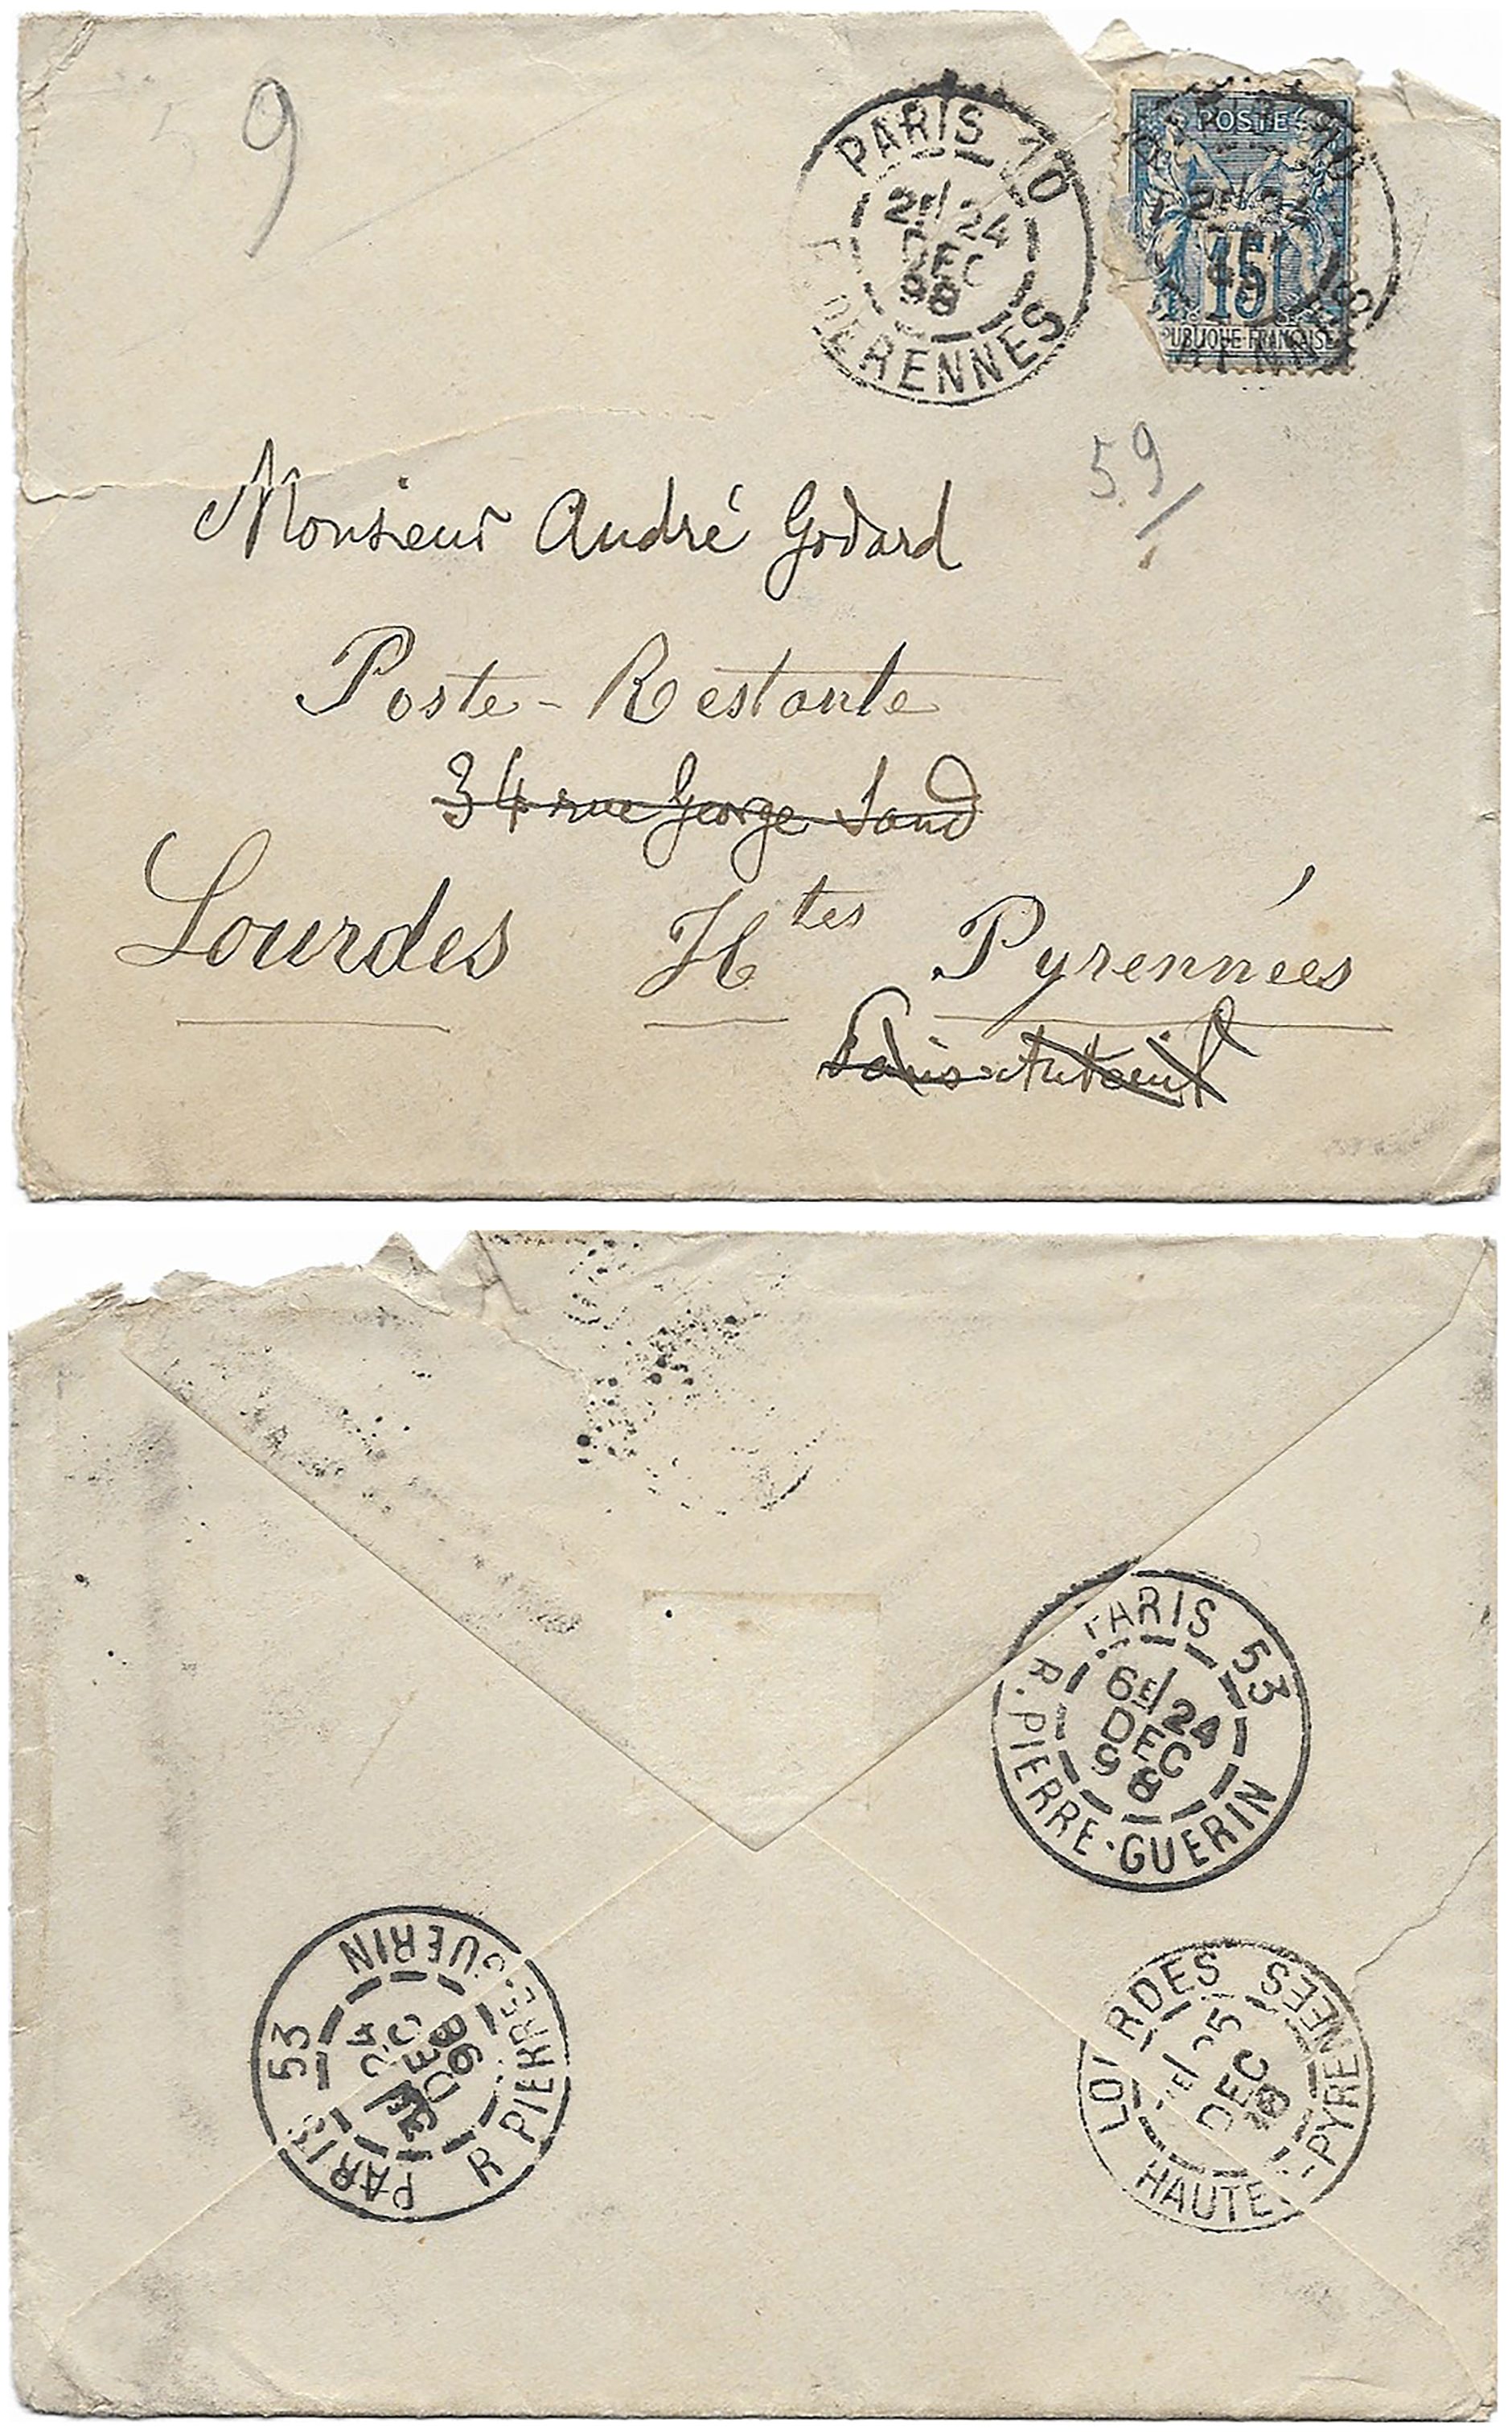 9
PARIS 10
2E/24
DEC
98
R. DE RENNES
POSTES
15
RÉPUBLIQUE FRANÇAISE
59/
Monsieur André Godard
Poste-Restante
34 rue George Sand
Lourdes Htes Pyrennées
Paris-Auteuil
PARIS 53
6E/24
DEC
98
R. PIERRE-GUERIN
PARIS 53
24
DEC
98
R. PIERRE-GUERIN
LOURDES
25
DEC
98
HAUTES-PYRENEES